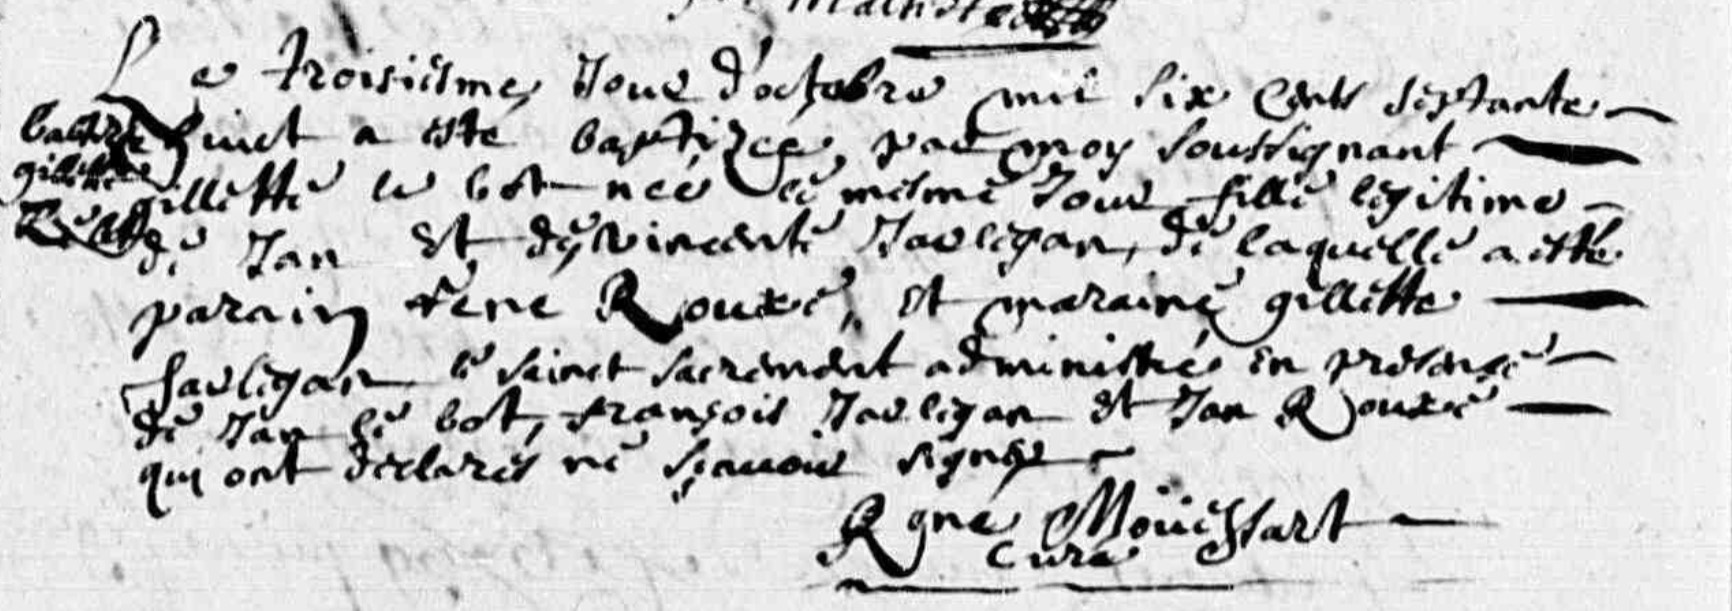 Le troisiesme Jour d'octobre mil six cents septante
huict a esté baptizée, par moy soussignant
gillette le bot née le mesme Jour fille legitime
de Jan Et de vincente Javlegan, de laquelle a esté
parain rene Rouxé, Et maraine gillette
Javlegan le sainct sacrement administré En presence
de Jan le bot, françois Javlegan Et Jan Rouxé
qui ont declarés ne sçavoir signer
Rgne Moüessart
Curé